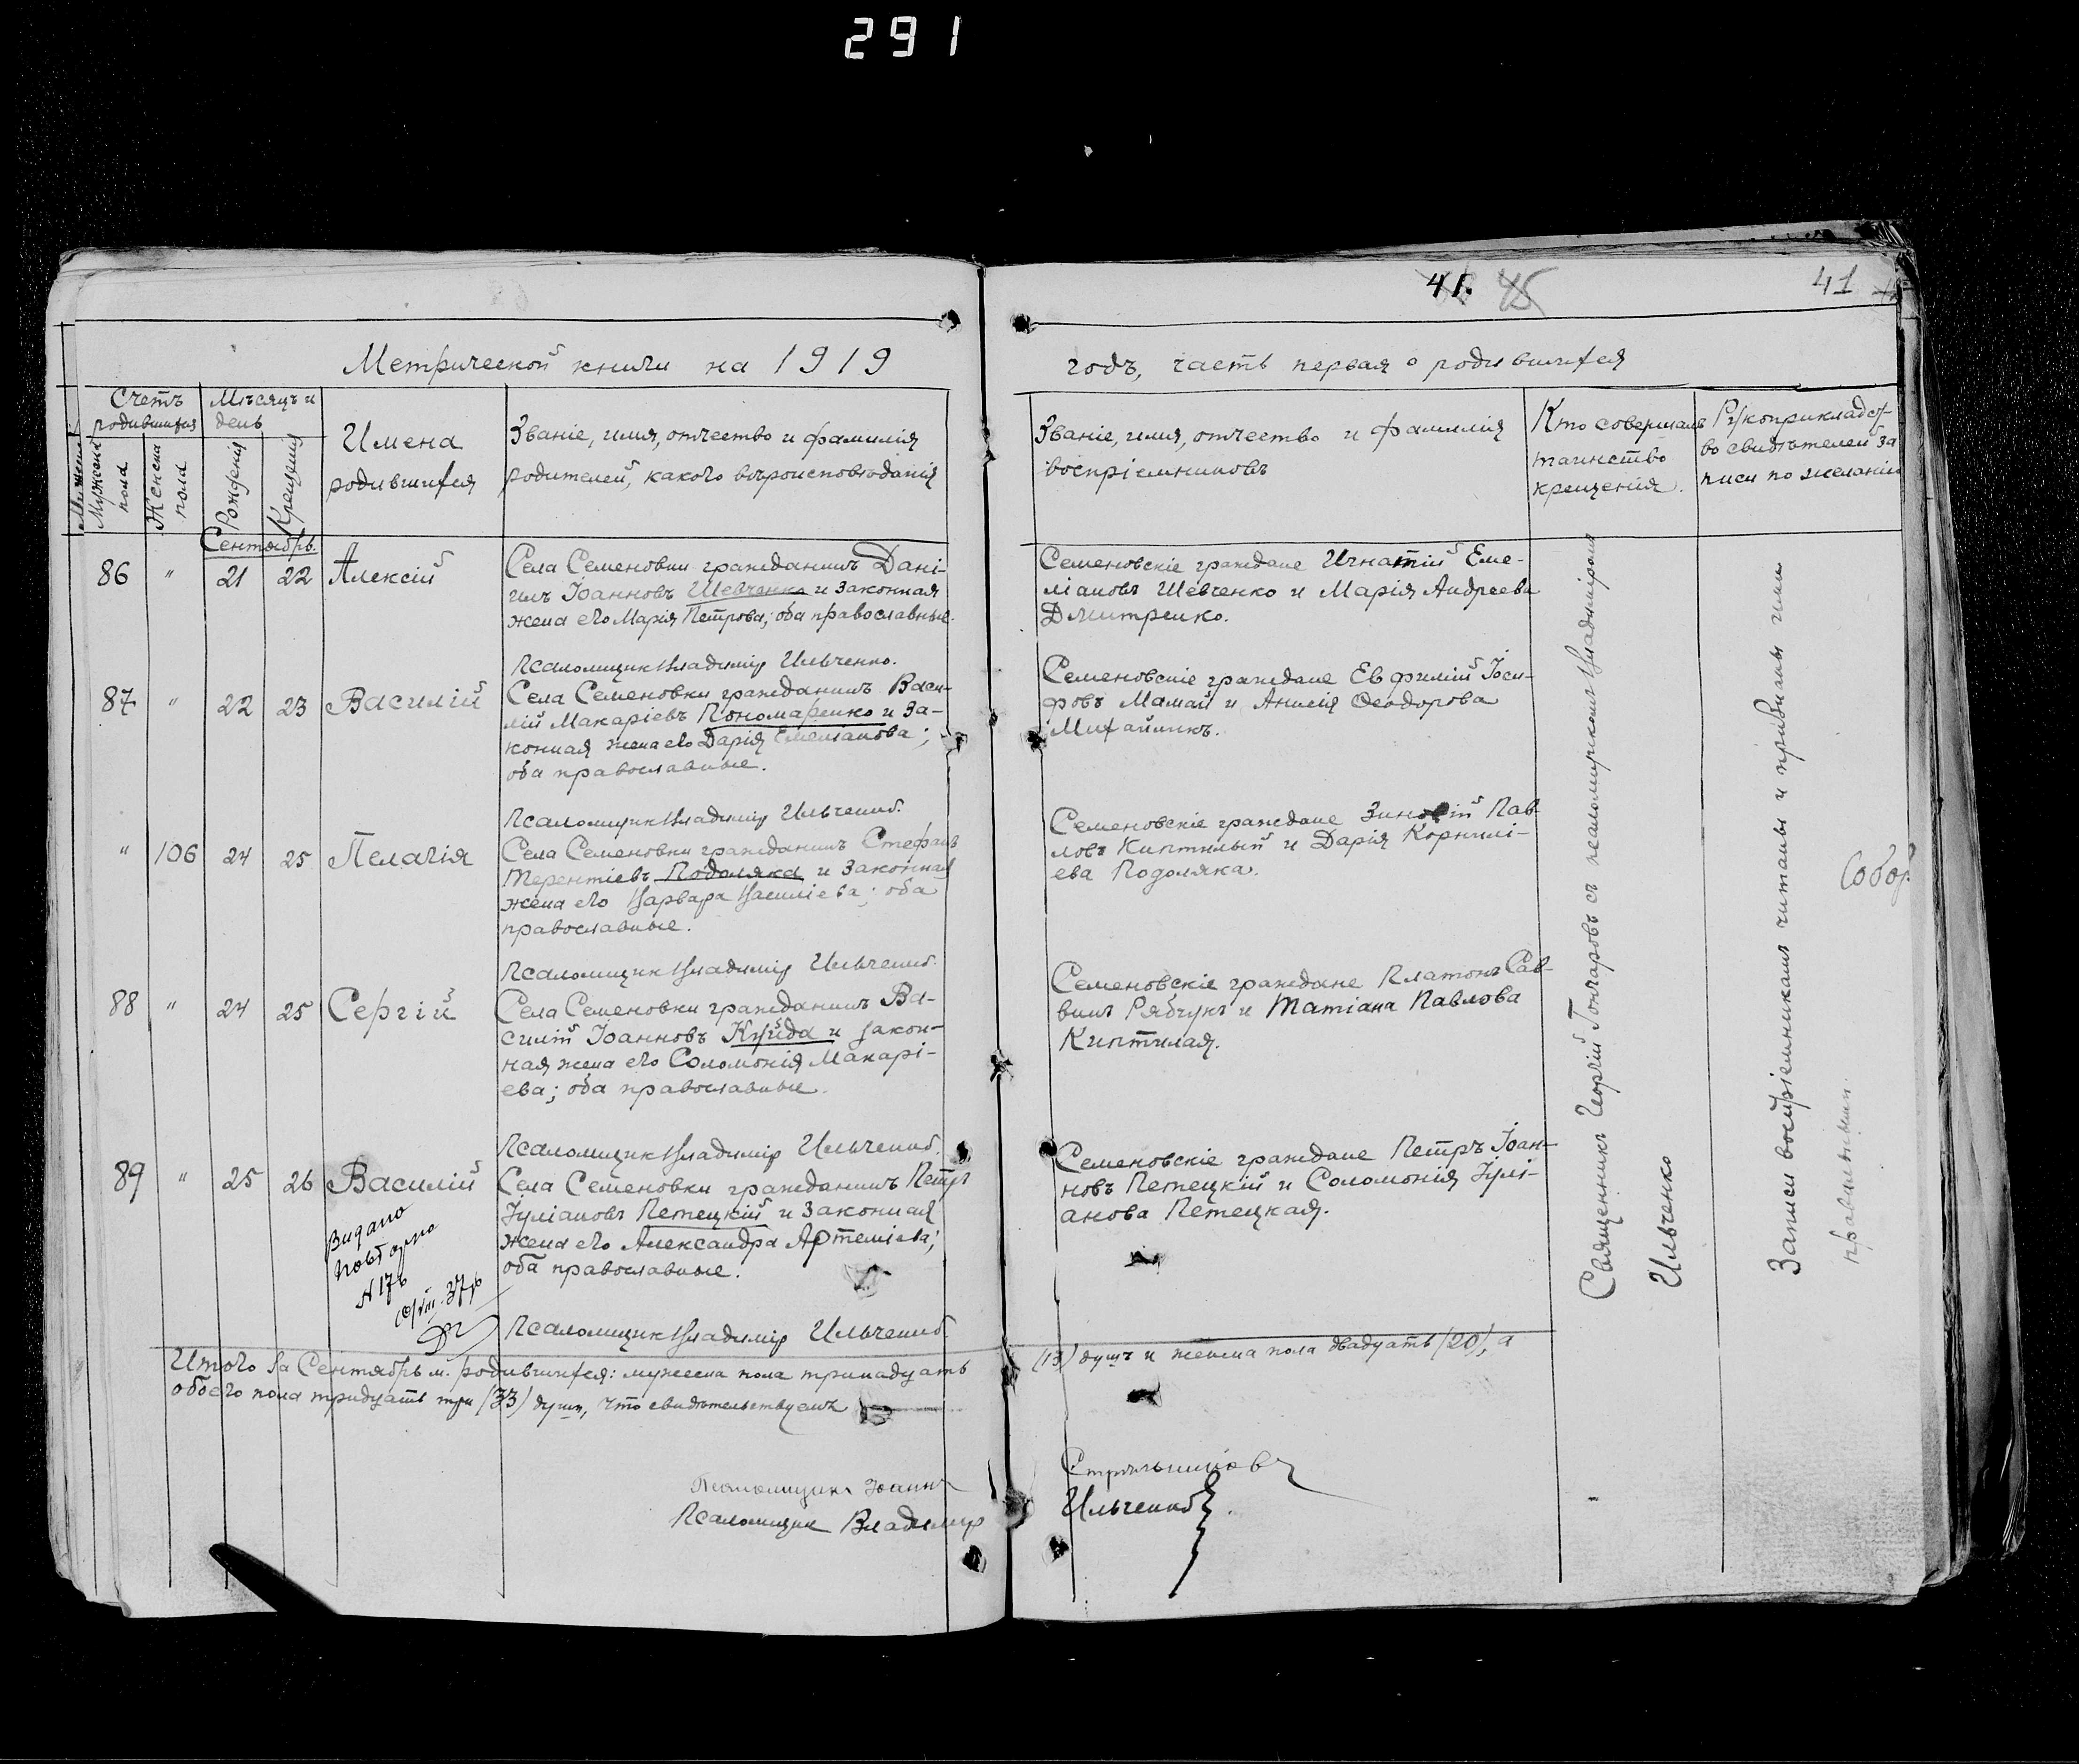 291
41. 45
41
Метрической книги на 1919
годъ, часть первая о родившихся
Счетъ родившихся
Мѣсяцъ и день
Мужеска пола
Женска пола
Рожденія
Крещенія
Имена
родившихся
Званіе, имя, отчество и фамилія
родителей, какого вѣроисповѣданія
Званіе, имя, отчество и фамилія
воспріемниковъ
Кто совершалъ
таинство
крещенія.
Рукоприкладст-
во свидѣтелей за
писи по желанію
Сентябрь.
86 " 21 22 Алексій
Села Семеновки гражданинъ Дані-
илъ Іоанновъ Шевченко и законная
жена его Марія Петрова; оба православные.
Семеновскіе граждане Игнатій Еме-
ліановъ Шевченко и Марія Андреева
Дмитренко.
Псаломщикъ Владимір Ильченко.
87 " 22 23 Василій
Села Семеновки гражданинъ Васи-
лій Макаріевъ Пономаренко и за-
конная жена его Дарія Емеліанова;
оба православные.
Семеновскіе граждане Евфимій Іоси-
фовъ Мамай и Анисія Ѳеодорова
Михайликъ.
Псаломщикъ Владимір Ильченко.
" 106 24 25 Пелагія
Села Семеновки гражданинъ Стефанъ
Терентіевъ Подоляка и законная
жена его Варвара Василіева; оба
православные.
Семеновскіе граждане Зиновій Пав-
ловъ Киптилый и Дарія Корнилі-
ева Подоляка.
Псаломщикъ Владимір Ильченко.
88 " 24 25 Сергій
Села Семеновки гражданинъ Ва-
силій Іоанновъ Куйда и закон-
ная жена его Соломонія Макарі-
ева; оба православные.
Семеновскіе граждане Платонъ Сав-
винъ Рябчукъ и Татіана Павлова
Киптилая.
Псаломщикъ Владимір Ильченко.
89 " 25 26 Василій
Села Семеновки гражданинъ Петръ
Іуліановъ Петецкій и законная
жена его Александра Артеміева;
оба православные.
Семеновскіе граждане Петръ Іоан-
новъ Петецкій и Соломонія Іулі-
анова Петецкая.
Видано
повторно
N 176
37р
Псаломщикъ Владимір Ильченко.
Священникъ Георгій Гончаровъ съ псаломщикомъ Владиміромъ
Ильченко
Записи воспріемникамъ читаны и признаны ими
правильными.
Собор.
Итого за Сентябрь м. родившихся: мужеска пола тринадцать
(13) душъ и женска пола двадцать (20), а
обоего пола тридцать три (33) души, что свидѣтельствуемъ
Псаломщикъ Іоаннъ
Стрѣльниковъ
Псаломщикъ Владимір
Ильченко.